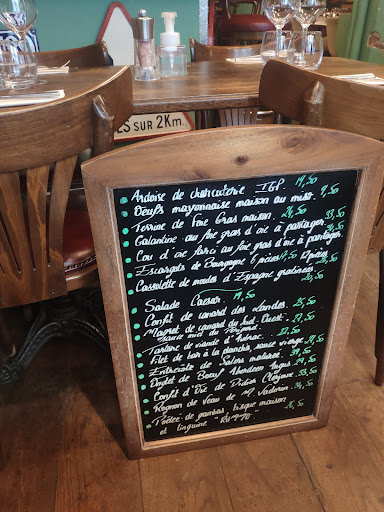 S SUR 2Km.
Ardoise de charcuterie IGP. 19,50
Oeufs mayonnaise maison au miso. 9,50
Terrine de Foie Gras maison. 24,50
Galantine au foie gras d'oie à partager. 33,50
Cou d'oie farci au foie gras d'oie à partager.
Escargots de Bourgogne 6 pièces 12 pièces
Cassolette de moules d'Espagne gratinées.
Salade Caesar. 19,50
Confit de canard des Landes. 25,50
Magret de canard du Sud-Ouest. 27,50
sauce miel du
Tartare de viande d'Aubrac. 22,50
Filet de bar à la plancha, sauce vierge.
Entrecôte de Salers maturée. 39,50
Onglet de Boeuf Aberdeen Angus. 29,50
Confit d'Oie de Didier 34,50
Rognon de Veau de
Poêlée de gambas, bisque maison 26,50
et linguine